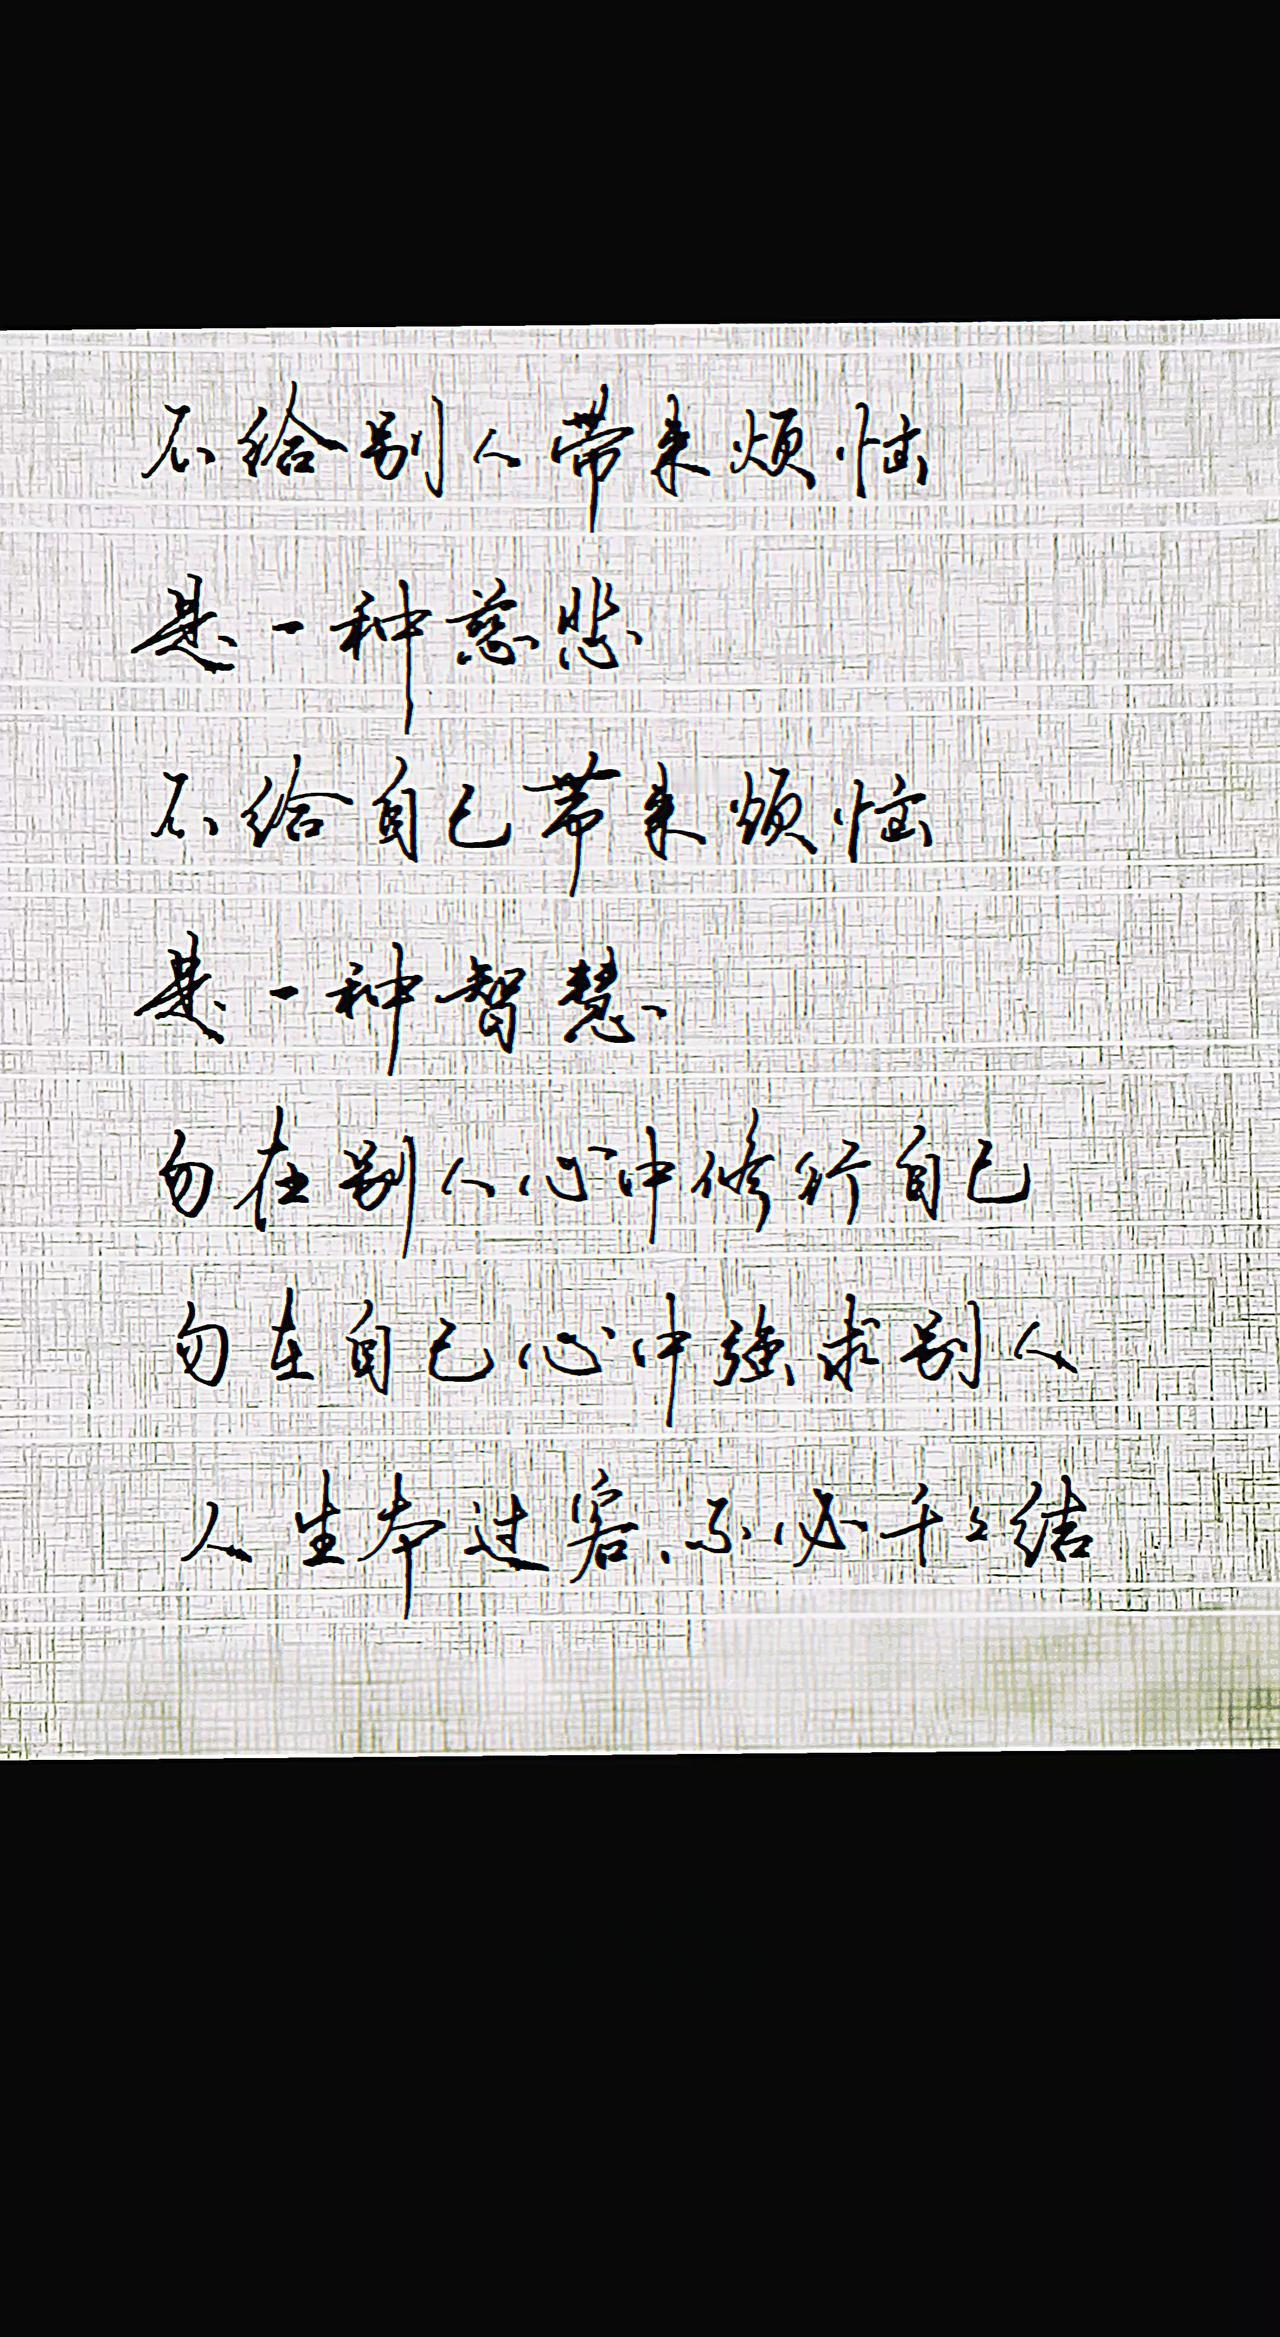 不给别人带来烦恼
是一种慈悲
不给自己带来烦恼
是一种智慧
勿在别人心中修行自己
勿在自己心中强求别人
人生本过客、不必千千结